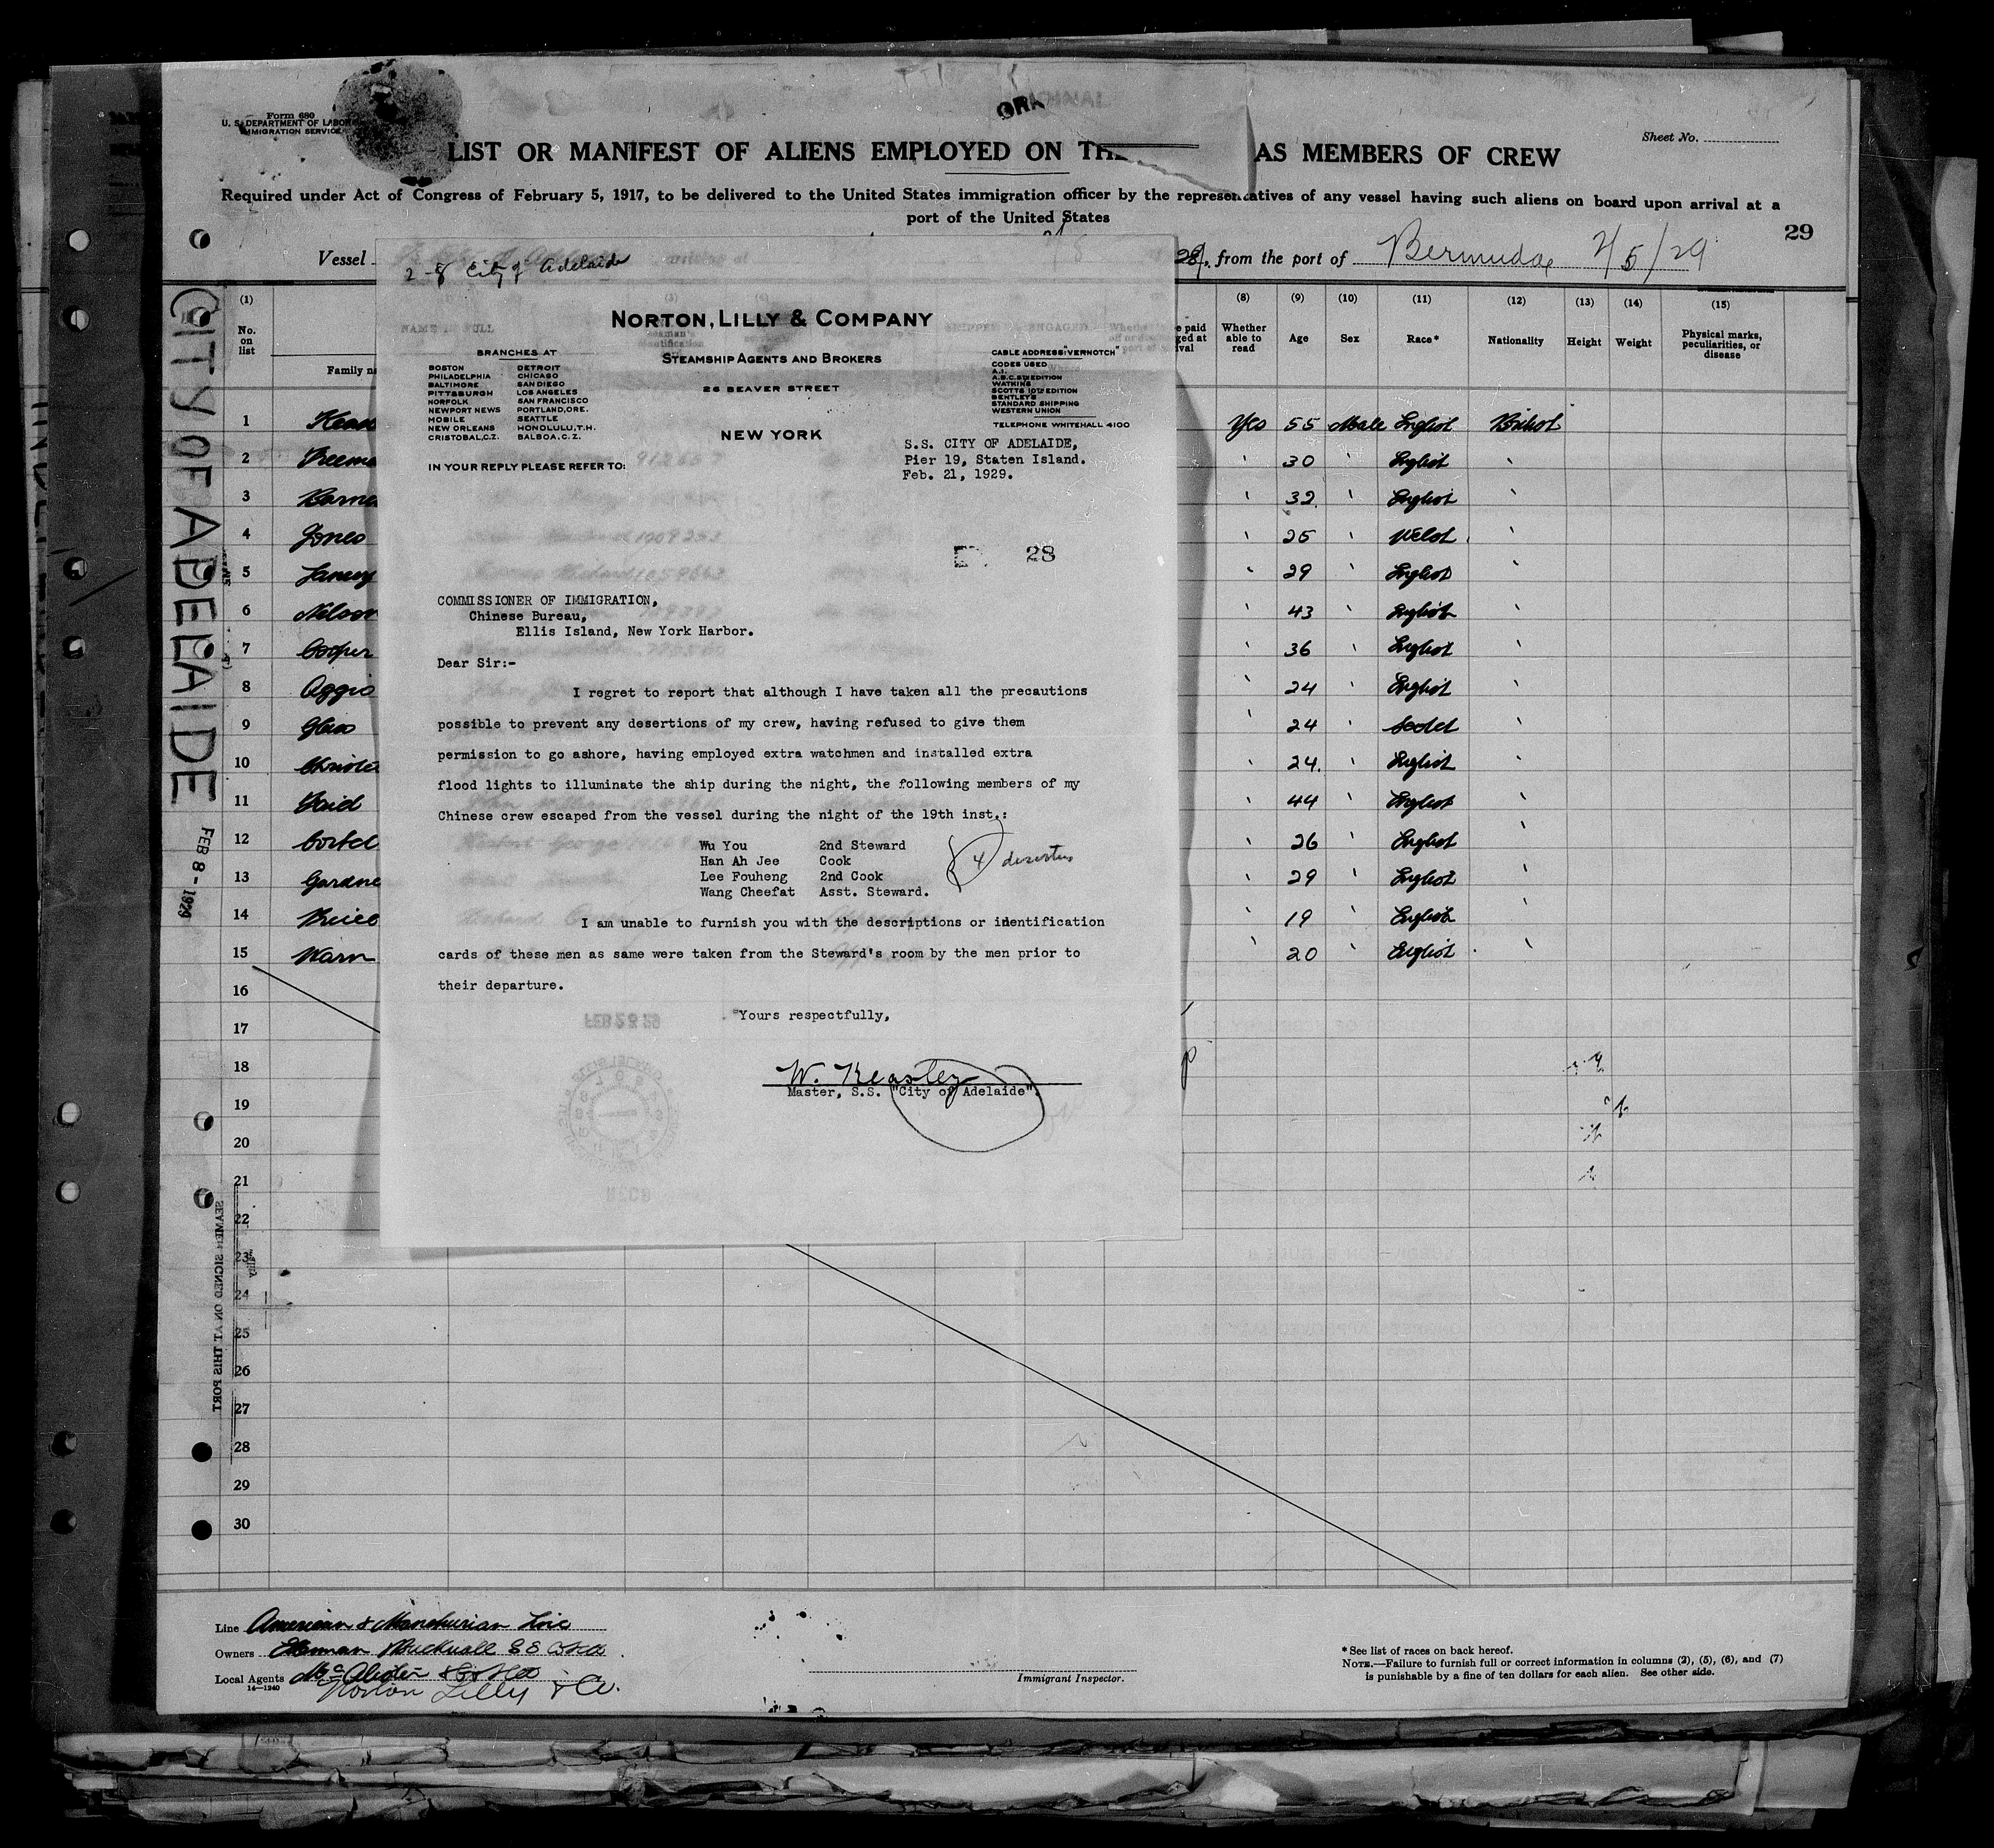 Form 680
U. S. DEPARTMENT OF LABOR
IMMIGRATION SERVICE
Sheet No.
LIST OR MANIFEST OF ALIENS EMPLOYED ON THE AS MEMBERS OF CREW
Required under Act of Congress of February 5, 1917, to be delivered to the United States immigration officer by the representatives of any vessel having such aliens on board upon arrival at a
port of the United States
29
Vessel
from the port of Bermuda 2/5/29
CITY OF ADELAIDE
FEB 8 - 1929
SEAMEN SIGNED ON AT THIS PORT
(1) (8) (9) (10) (11) (12) (13) (14) (15)
No. on list
Whether able to read
Age
Sex
Race*
Nationality
Height
Weight
Physical marks, peculiarities, or disease
1 Yes 55 Male English British
2 30 English
3 32 English
4 Jones 25 Welsh
5 29 English
6 43 English
7 Cooper 36 English
8 24 English
9 24
10 24 English
11 44 English
12 26 English
13 29 English
14 19 English
15 20 English
16
17
18
19
20
21
22
23
24
25
26
27
28
29
30
2-8 City of Adelaide
NORTON, LILLY & COMPANY
STEAMSHIP AGENTS AND BROKERS
26 BEAVER STREET
NEW YORK
BRANCHES AT
BOSTON DETROIT
PHILADELPHIA CHICAGO
BALTIMORE SAN DIEGO
PITTSBURGH LOS ANGELES
NORFOLK SAN FRANCISCO
NEWPORT NEWS PORTLAND, ORE.
MOBILE SEATTLE
NEW ORLEANS HONOLULU, T.H.
CRISTOBAL, C.Z. BALBOA, C.Z.
CABLE ADDRESS "VERNOTCH"
CODES USED
A.I.
A.B.C. 5TH EDITION
WATKINS
SCOTTS 10TH EDITION
BENTLEY'S
STANDARD SHIPPING
WESTERN UNION
TELEPHONE WHITEHALL 4100
IN YOUR REPLY PLEASE REFER TO:
S.S. CITY OF ADELAIDE,
Pier 19, Staten Island.
Feb. 21, 1929.
28
COMMISSIONER OF IMMIGRATION,
Chinese Bureau,
Ellis Island, New York Harbor.
Dear Sir:-
I regret to report that although I have taken all the precautions
possible to prevent any desertions of my crew, having refused to give them
permission to go ashore, having employed extra watchmen and installed extra
flood lights to illuminate the ship during the night, the following members of my
Chinese crew escaped from the vessel during the night of the 19th inst.:
Wu You 2nd Steward
Han Ah Jee Cook
Lee Fouheng 2nd Cook
Wang Cheefat Asst. Steward.
4 deserters
I am unable to furnish you with the descriptions or identification
cards of these men as same were taken from the Steward's room by the men prior to
their departure.
Yours respectfully,
W. Keasley
Master, S.S. "City of Adelaide".
FEB 28 29
Line American & Manchurian Line
Owners Ellerman & Bucknall SS Co Ltd
Local Agents
Norton Lilly & Co.
14—1240
Immigrant Inspector.
* See list of races on back hereof.
NOTE.—Failure to furnish full or correct information in columns (2), (5), (6), and (7)
is punishable by a fine of ten dollars for each alien. See other side.